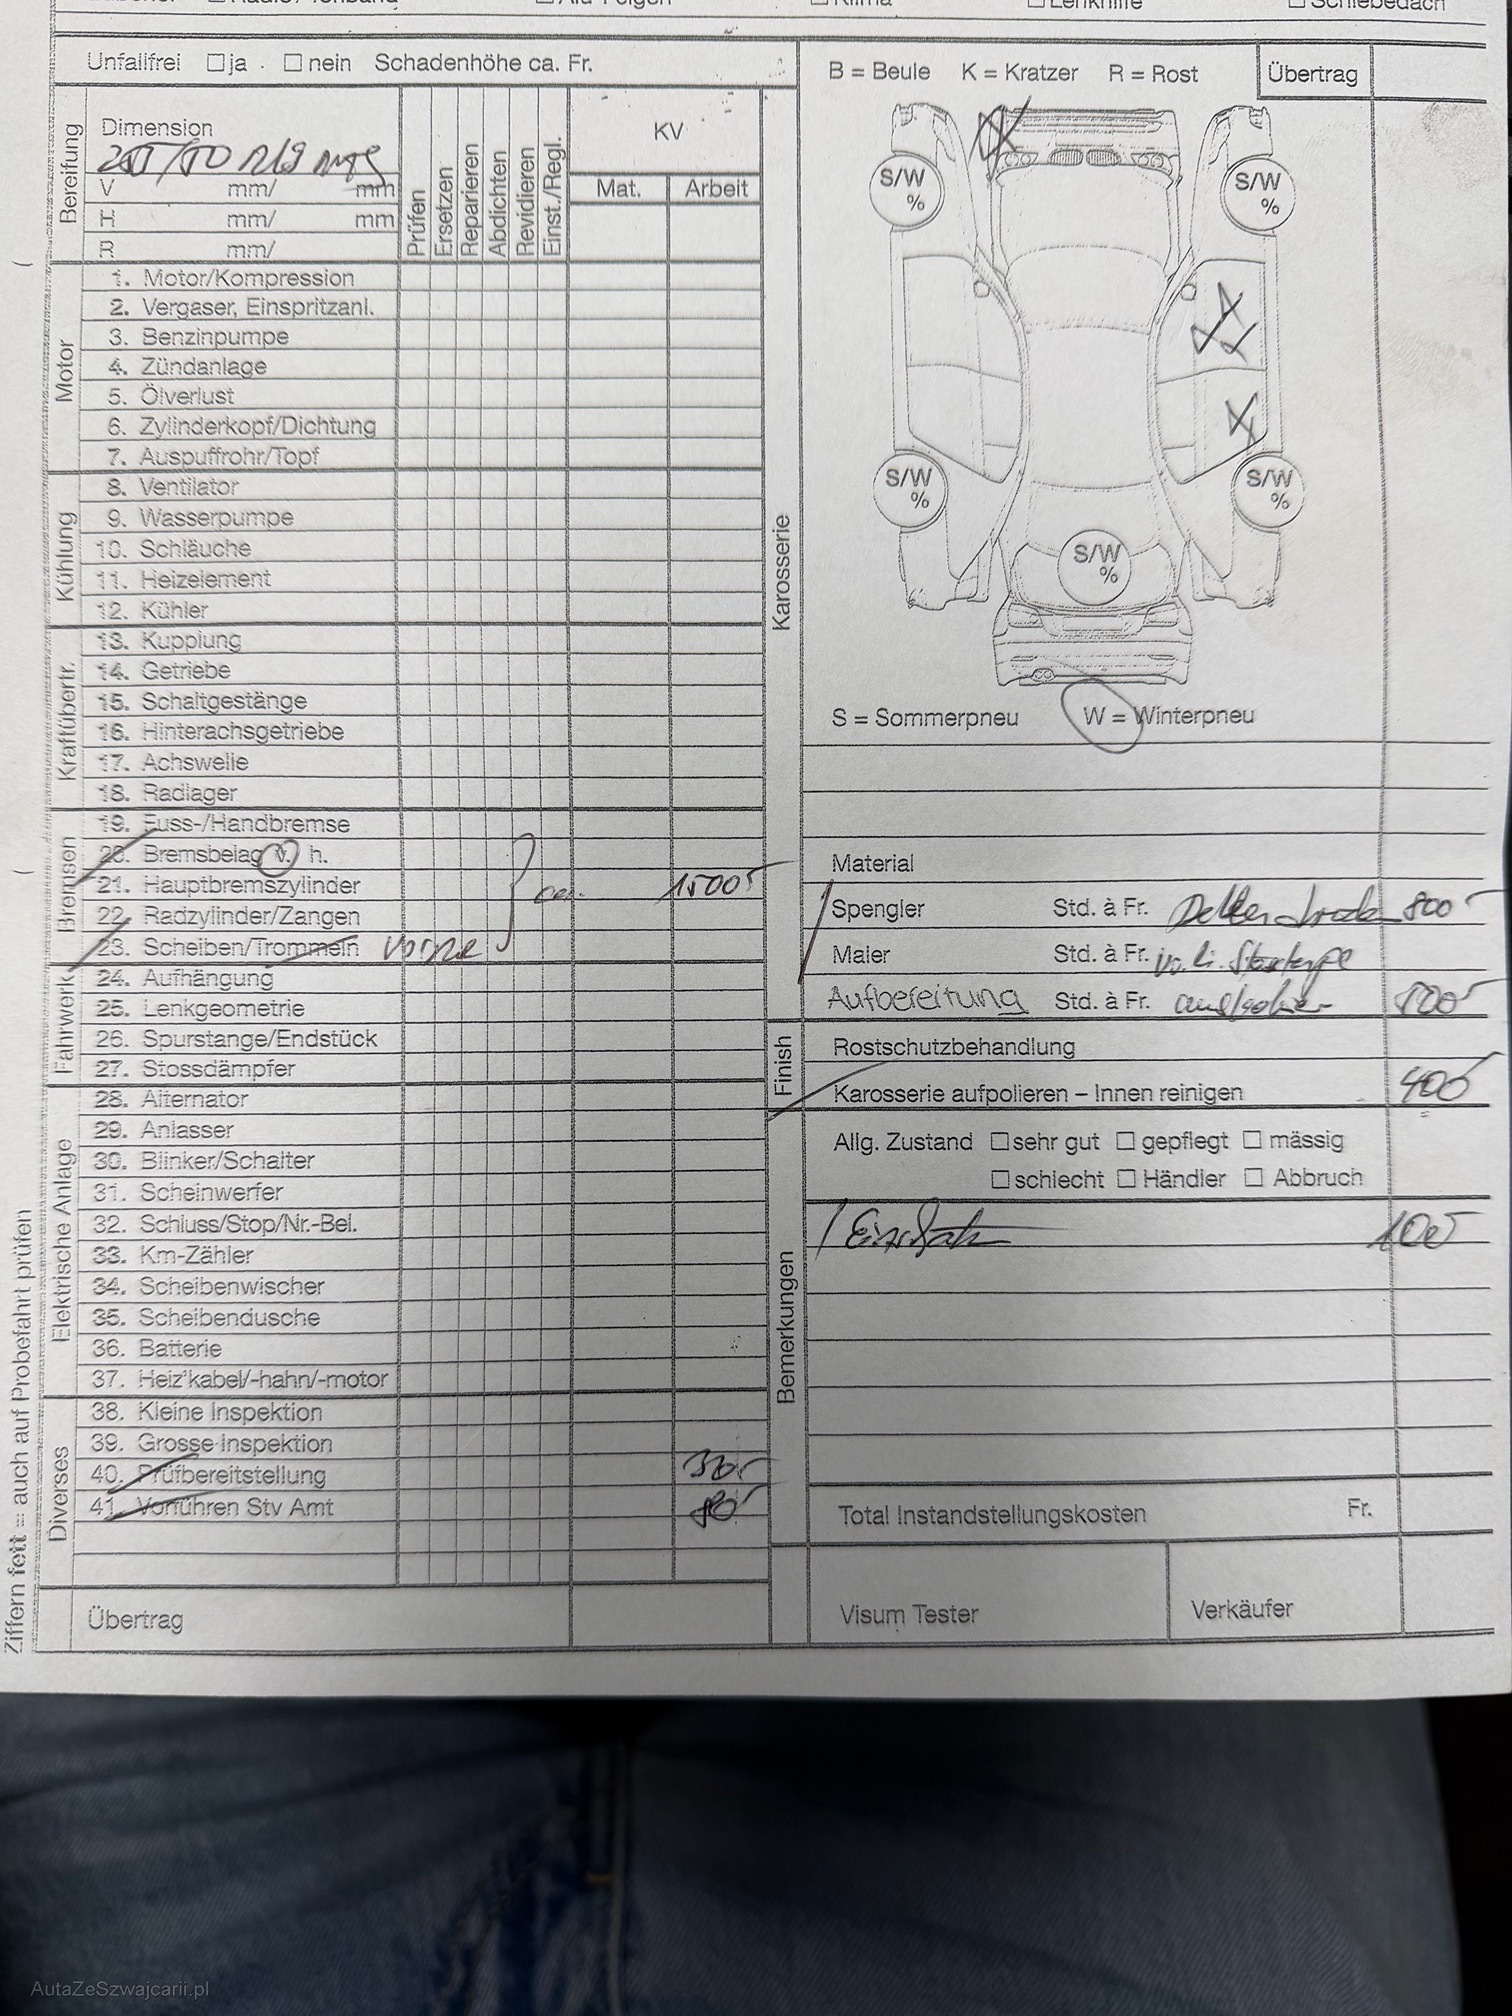 Unfallfrei ja nein Schadenhöhe ca. Fr.
Bereifung
Dimension
V mm/ mm
H mm/ mm
R mm/
Prüfen
Ersetzen
Reparieren
Abdichten
Revidieren
Einst./Regl.
KV
Mat. Arbeit
Motor
1. Motor/Kompression
2. Vergaser, Einspritzanl.
3. Benzinpumpe
4. Zündanlage
5. Ölverlust
6. Zylinderkopf/Dichtung
7. Auspuffrohr/Topf
Kühlung
8. Ventilator
9. Wasserpumpe
10. Schläuche
11. Heizelement
12. Kühler
Kraftübertr.
13. Kupplung
14. Getriebe
15. Schaltgestänge
16. Hinterachsgetriebe
17. Achswelle
18. Radlager
Bremsen
19. Fuss-/Handbremse
20. Bremsbelag v. h.
21. Hauptbremszylinder 1500
22. Radzylinder/Zangen
23. Scheiben/Trommeln vorne
Fahrwerk
24. Aufhängung
25. Lenkgeometrie
26. Spurstange/Endstück
27. Stossdämpfer
Elektrische Anlage
28. Alternator
29. Anlasser
30. Blinker/Schalter
31. Scheinwerfer
32. Schluss/Stop/Nr.-Bel.
33. Km-Zähler
34. Scheibenwischer
35. Scheibendusche
36. Batterie
37. Heiz'kabel/-hahn/-motor
Diverses
38. Kleine Inspektion
39. Grosse Inspektion
40. Prüfbereitstellung
41. Vorführen Stv Amt 80
Übertrag
Ziffern fett = auch auf Probefahrt prüfen
B = Beule K = Kratzer R = Rost
Übertrag
S/W %
S/W %
S/W %
S/W %
S/W %
S = Sommerpneu W = Winterpneu
Karosserie
Material
Spengler Std. à Fr. 800
Maler Std. à Fr.
Aufbereitung Std. à Fr. 500
Finish
Rostschutzbehandlung
Karosserie aufpolieren – Innen reinigen 400
Allg. Zustand sehr gut gepflegt mässig
schlecht Händler Abbruch
Bemerkungen
100
Total Instandstellungskosten Fr.
Visum Tester Verkäufer
AutaZeSzwajcarii.pl